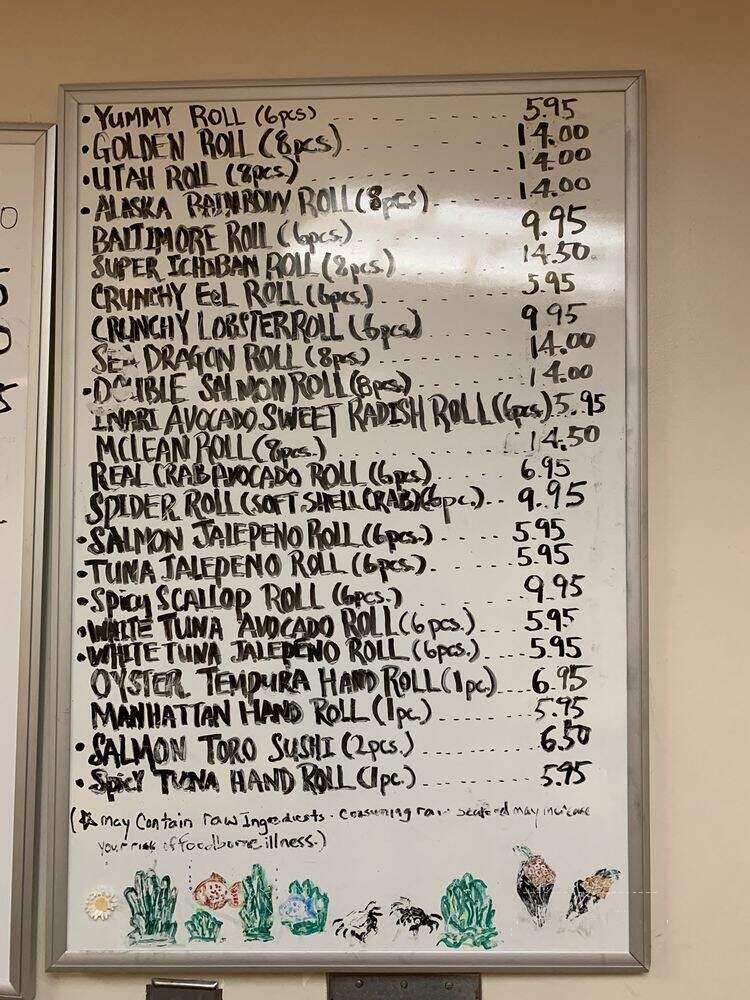 • YUMMY ROLL (6pcs) ............ 5.95
• GOLDEN ROLL (8pcs) ............ 14.00
• UTAH ROLL (8pcs.) ............ 14.00
• ALASKA RAINBOW ROLL (8pcs) ...... 14.00
BALTIMORE ROLL (6pcs.) ............ 9.95
SUPER ICHIBAN ROLL (8pcs.) ........ 14.50
CRUNCHY EeL ROLL (6pcs.) ............ 5.95
CRUNCHY LOBSTER ROLL (6pcs) ........ 9.95
SEA DRAGON ROLL (8pcs) ............ 14.00
• DOUBLE SALMON ROLL (8pcs) ........ 14.00
INARI AVOCADO SWEET RADISH ROLL (6pcs.) 5.95
MCLEAN ROLL (8pcs.) ............ 14.50
REAL CRAB AVOCADO ROLL (6pcs) ...... 6.95
SPIDER ROLL (SOFT SHELL CRAB) (6pc.) .. 9.95
• SALMON JALEPENO ROLL (6pcs.) ...... 5.95
• TUNA JALEPENO ROLL (6pcs.) ...... 5.95
• Spicy SCALLOP ROLL (6pcs.) ........ 9.95
• WHITE TUNA AVOCADO ROLL (6pcs.) ... 5.95
• WHITE TUNA JALEPENO ROLL (6pcs.) ... 5.95
OYSTER TEMPURA HAND ROLL (1pc.) ... 6.95
MANHATTAN HAND ROLL (1pc.) ........ 5.95
• SALMON TORO SUSHI (2pcs.) ........ 6.50
• Spicy TUNA HAND ROLL (1pc.) ........ 5.95
(☆ may Contain raw Ingredients. Consuming raw seafood may increase
your risk of foodborne illness.)